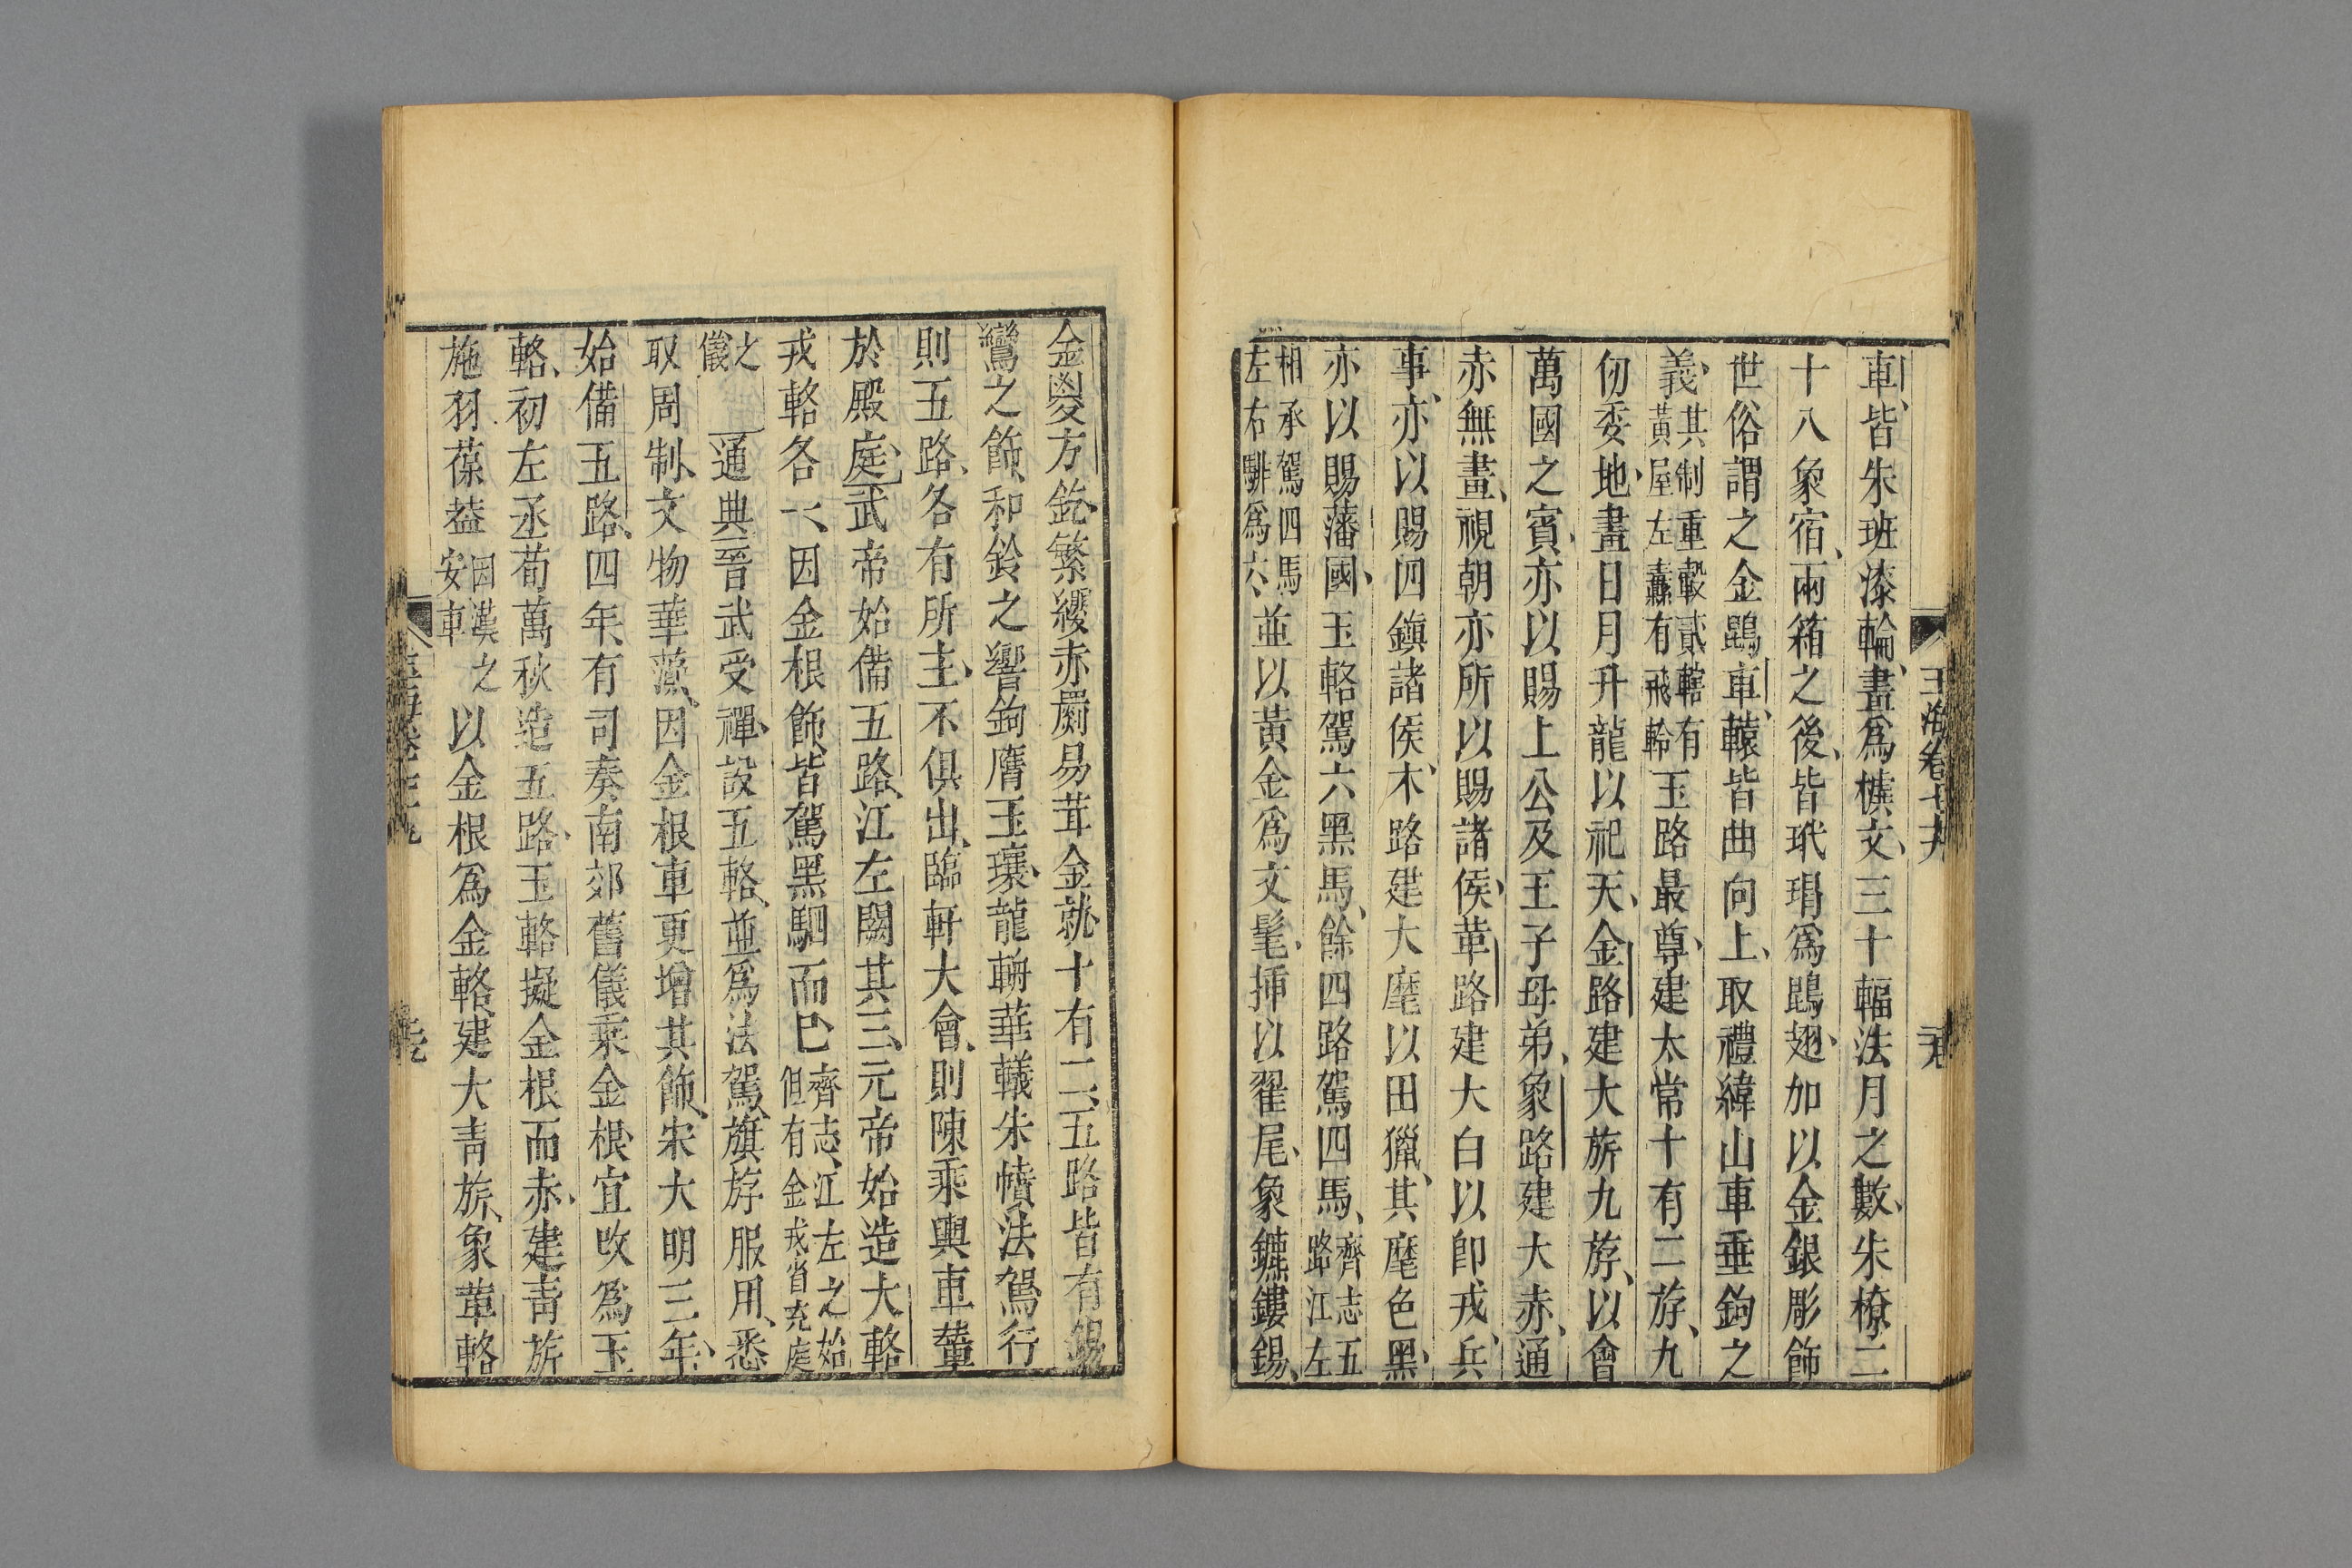 車皆朱班漆輪畫爲㯷文三十輻法月之數朱橑二
十八象宿兩箱之後皆玳瑁爲鵾翅加以金銀彫飾
世俗謂之金鵾車轅皆曲向上取禮緯山車垂鉤之
義其制重轂貳轄有黃屋左纛有飛軨玉路最尊建太常十有二斿九
仞委地畫日月升龍以祀天金路建大旂九斿以會
萬國之賓亦以賜上公及王子母弟象路建大赤通
赤無畫視朝亦所以賜諸侯革路建大白以卽戎兵
事亦以賜四鎮諸侯木路建大麾以田獵其麾色黑
亦以賜藩國玉輅駕六黑馬餘四路駕四馬齊志五路江左
相承駕四馬左右騑爲六並以黃金爲文髦插以翟尾象鑣鏤錫
玉海卷七十九
金㚇方釳繁纓赤罽易茸金就十有二五路皆有錫
鸞之飾和鈴之響鉤膺玉瓖龍輈華轙朱幩法駕行
則五路各有所主不俱出臨軒大會則陳乘輿車輦
於殿庭武帝始備五路江左闕其三元帝始造大輅
戎輅各一因金根飾皆駕黑駟而已齊志江左之始但有金戎省充庭
之儀 通典晉武受禪設五輅並爲法駕旗斿服用悉
取周制文物華藻因金根車更增其飾宋大明三年
始備五路四年有司奏南郊舊儀乘金根宜改爲玉
輅初左丞荀萬秋造五路玉輅擬金根而赤建青旂
施羽葆葢因漢之安車以金根爲金輅建大青旂象革輅